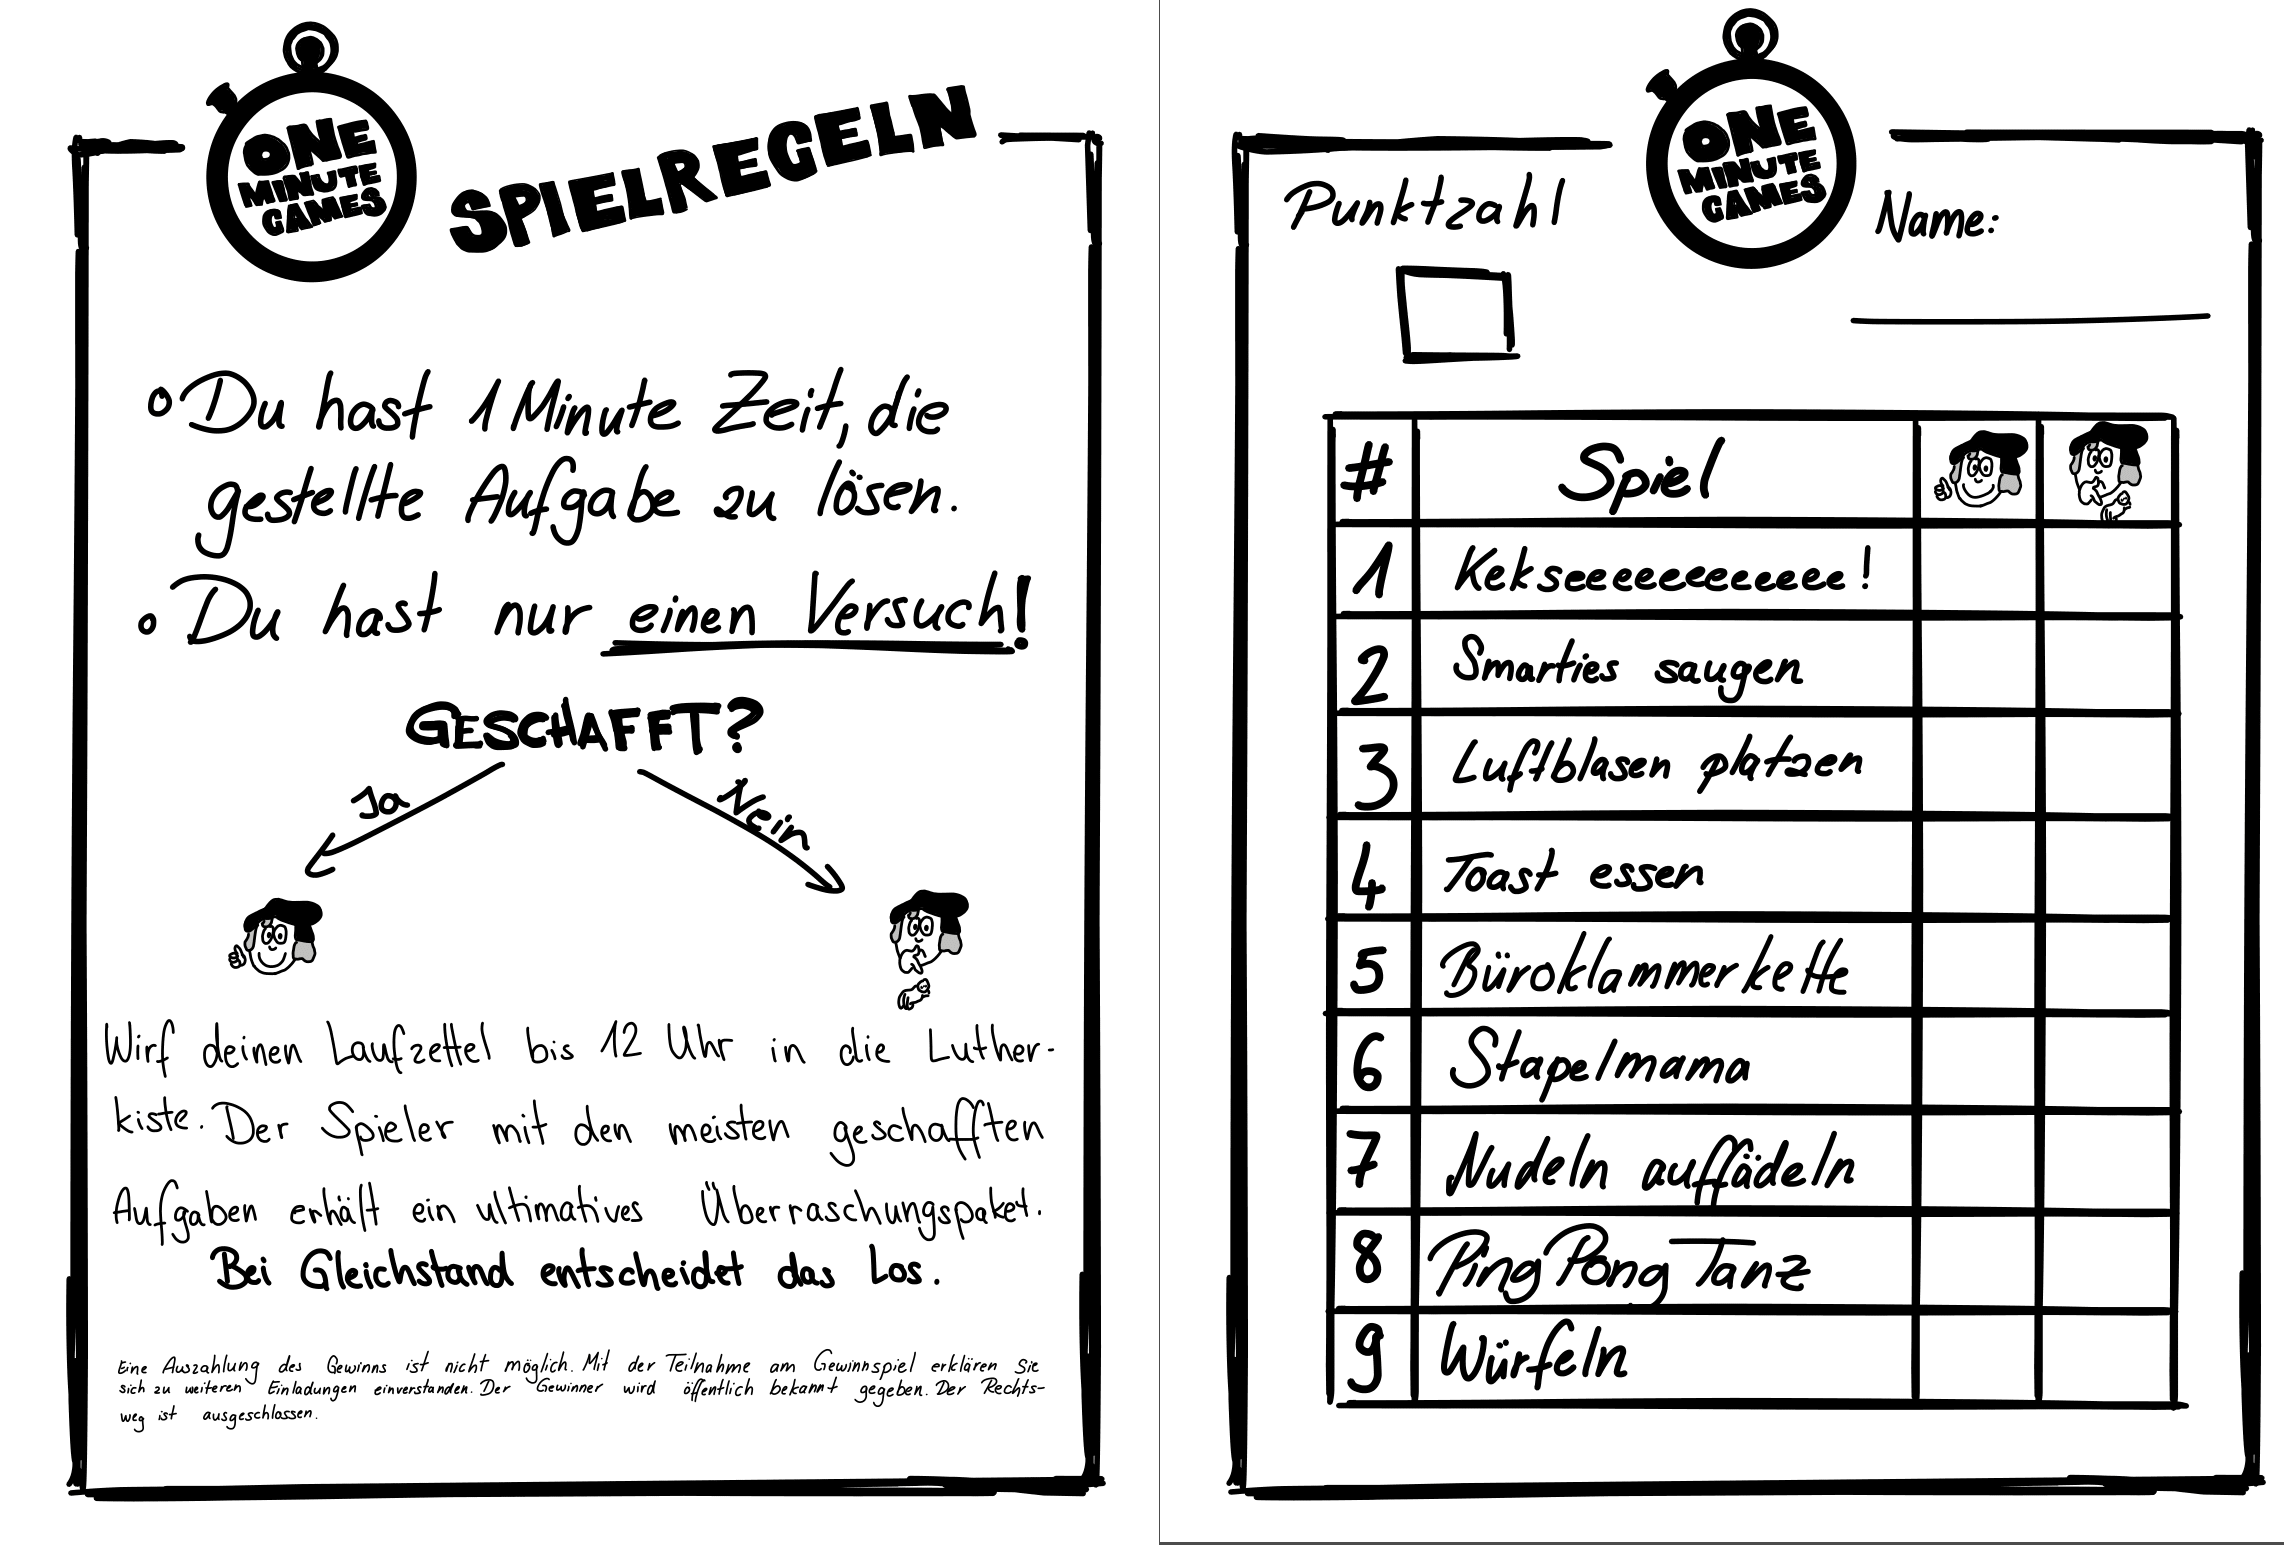 ONE
MINUTE
GAMES
SPIELREGELN
Du hast 1 Minute Zeit, die
gestellte Aufgabe zu lösen.
Du hast nur einen Versuch!
GESCHAFFT?
Ja
Nein
Wirf deinen Laufzettel bis 12 Uhr in die Luther-
kiste. Der Spieler mit den meisten geschafften
Aufgaben erhält ein ultimatives Überraschungspaket.
Bei Gleichstand entscheidet das Los.
Eine Auszahlung des Gewinns ist nicht möglich. Mit der Teilnahme am Gewinnspiel erklären Sie
sich zu weiteren Einladungen einverstanden. Der Gewinner wird öffentlich bekannt gegeben. Der Rechts-
weg ist ausgeschlossen.
ONE
MINUTE
GAMES
Punktzahl
Name:
# Spiel
1 Kekseeeeeeeeeeee!
2 Smarties saugen
3 Luftblasen platzen
4 Toast essen
5 Büroklammerkette
6 Stapelmama
7 Nudeln auffädeln
8 Ping Pong Tanz
9 Würfeln